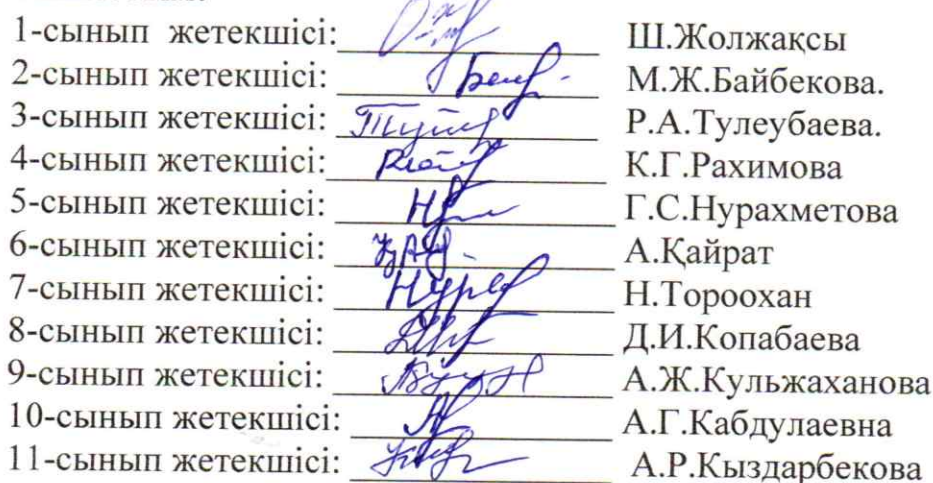 1-сынып жетекшісі: Ш.Жолжақсы
2-сынып жетекшісі: М.Ж.Байбекова.
3-сынып жетекшісі: Р.А.Тулеубаева.
4-сынып жетекшісі: К.Г.Рахимова
5-сынып жетекшісі: Г.С.Нурахметова
6-сынып жетекшісі: А.Қайрат
7-сынып жетекшісі: Н.Тороохан
8-сынып жетекшісі: Д.И.Копабаева
9-сынып жетекшісі: А.Ж.Кульжаханова
10-сынып жетекшісі: А.Г.Кабдулаевна
11-сынып жетекшісі: А.Р.Кыздарбекова